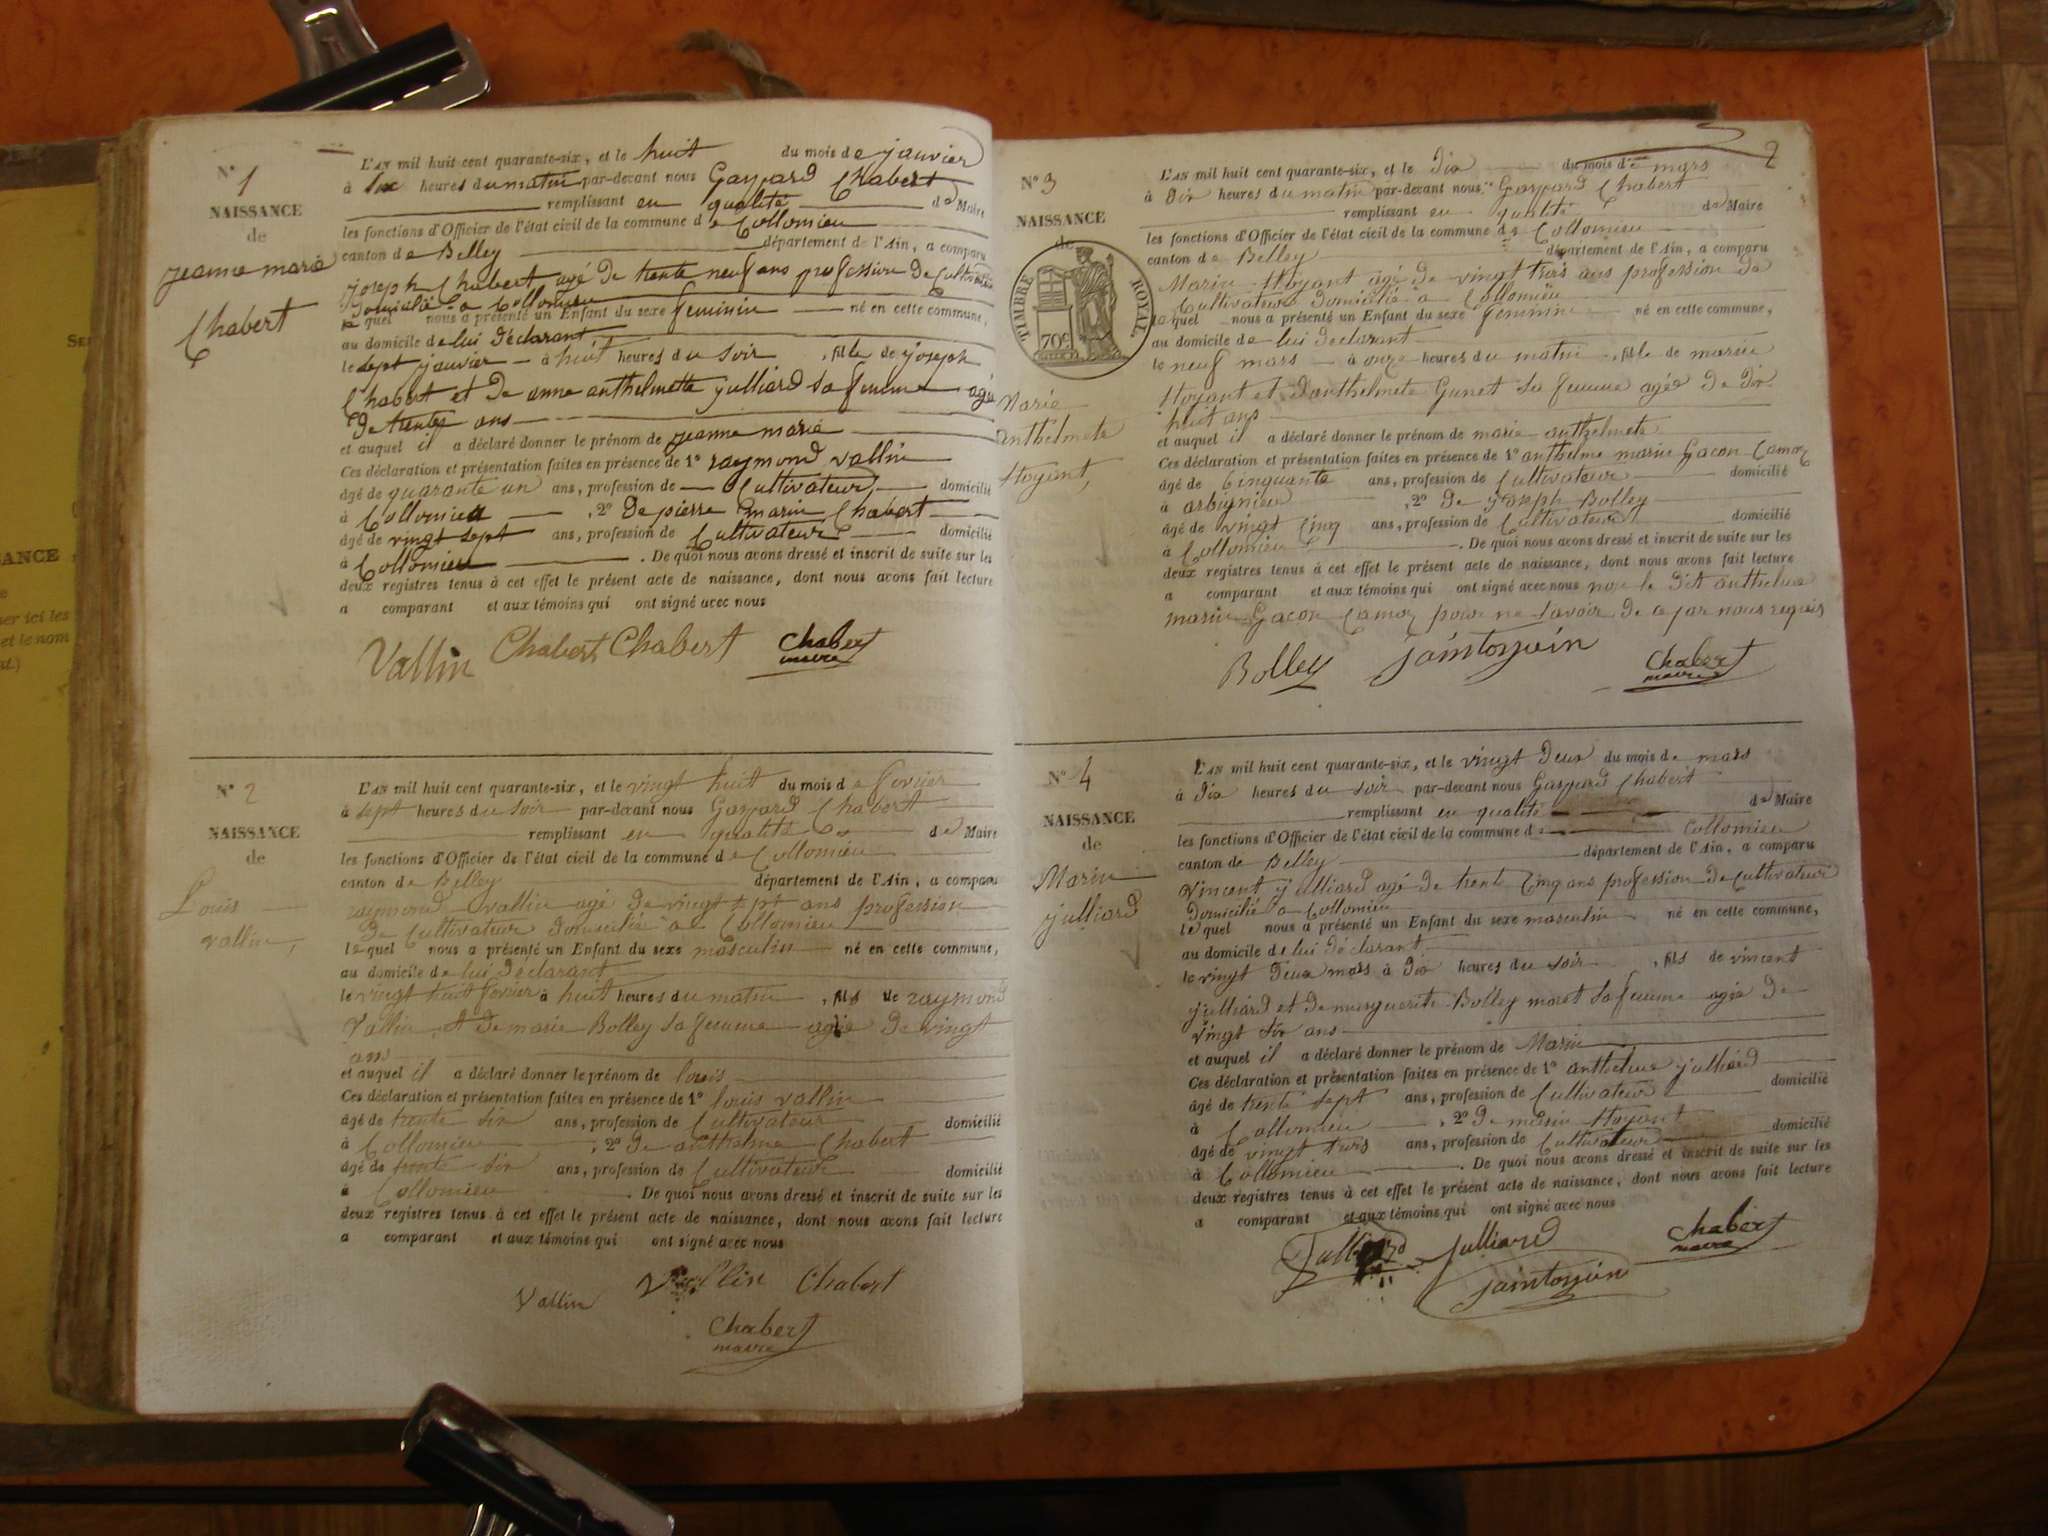 N° 1
NAISSANCE
de
jeanne marie
Chabert
L'AN mil huit cent quarante-six, et le huit du mois de janvier
à six heures du matin par-devant nous Gaspard Chabert
remplissant en qualité de Maire
les fonctions d'Officier de l'état civil de la commune de Collomieu
canton de Belley département de l'Ain, a comparu
joseph Chabert agé de trente neuf ans profession de Cultivateur
domicilié a Collomieu
le quel nous a présenté un Enfant du sexe feminin né en cette commune,
au domicile de lui déclarant
le sept janvier à huit heures du soir, fille de joseph
Chabert et de anne anthelmette julliard sa femme agée
de trente ans
et auquel il a déclaré donner le prénom de jeanne marie
Ces déclaration et présentation faites en présence de 1° raymond vallin
âgé de quarante un ans, profession de Cultivateur domicilié
à Collomieu, 2° de pierre marin Chabert
âgé de vingt sept ans, profession de Cultivateur domicilié
à Collomieu. De quoi nous avons dressé et inscrit de suite sur les
deux registres tenus à cet effet le présent acte de naissance, dont nous avons fait lecture
a comparant et aux témoins qui ont signé avec nous
Vallin Chabert Chabert Chabert
maire
N° 2
NAISSANCE
de
Louis
vallin,
L'AN mil huit cent quarante-six, et le vingt huit du mois de fevrier
à sept heures du soir par-devant nous Gaspard Chabert
remplissant en qualité de Maire
les fonctions d'Officier de l'état civil de la commune de Collomieu
canton de Belley département de l'Ain, a comparu
raymond vallin agé de vingt sept ans profession
de Cultivateur domicilié a Collomieu
le quel nous a présenté un Enfant du sexe masculin né en cette commune,
au domicile de lui déclarant
le vingt huit fevrier à huit heures du matin, fils de raymond
Vallin et de marie Bolley sa femme agée de vingt
ans
et auquel il a déclaré donner le prénom de louis
Ces déclaration et présentation faites en présence de 1° louis vallin
âgé de trente six ans, profession de Cultivateur domicilié
à Collomieu, 2° de anthelme Chabert
âgé de trente six ans, profession de Cultivateur domicilié
à Collomieu. De quoi nous avons dressé et inscrit de suite sur les
deux registres tenus à cet effet le présent acte de naissance, dont nous avons fait lecture
a comparant et aux témoins qui ont signé avec nous
Vallin Vallin Chabert
Chabert
maire
2
N° 3
NAISSANCE
de
TIMBRE ROYAL
70c
Marie
anthelmete
Hoyant,
L'AN mil huit cent quarante-six, et le dix du mois de mars
à dix heures du matin par-devant nous Gaspard Chabert
remplissant en qualité de Maire
les fonctions d'Officier de l'état civil de la commune de Collomieu
canton de Belley département de l'Ain, a comparu
Marin Hoyant agé de vingt trois ans profession de
Cultivateur domicilié a Collomieu
le quel nous a présenté un Enfant du sexe feminin né en cette commune,
au domicile de lui déclarant
le neuf mars à onze heures du matin, fille de marin
Hoyant et d'anthelmete Gunet sa femme agée de dix
huit ans
et auquel il a déclaré donner le prénom de marie anthelmete
Ces déclaration et présentation faites en présence de 1° anthelme marin Gacon Camoz
âgé de Cinquante ans, profession de Cultivateur domicilié
à arbignieu, 2° de joseph Bolley
âgé de vingt Cinq ans, profession de Cultivateur domicilié
à Collomieu. De quoi nous avons dressé et inscrit de suite sur les
deux registres tenus à cet effet le présent acte de naissance, dont nous avons fait lecture
a comparant et aux témoins qui ont signé avec nous non le dit anthelme
marin Gacon Camoz pour ne savoir de ce par nous requis
Bolley jaintoyuin Chabert
maire
N° 4
NAISSANCE
de
Marin
julliard
L'AN mil huit cent quarante-six, et le vingt deux du mois de mars
à dix heures du soir par-devant nous Gaspard Chabert
remplissant en qualité de Maire
les fonctions d'Officier de l'état civil de la commune de Collomieu
canton de Belley département de l'Ain, a comparu
Vincent julliard agé de trente Cinq ans profession de Cultivateur
domicilié a Collomieu
le quel nous a présenté un Enfant du sexe masculin né en cette commune,
au domicile de lui déclarant
le vingt deux mars à dix heures du soir, fils de vincent
julliard et de marguerite Bolley moret sa femme agée de
vingt six ans
et auquel il a déclaré donner le prénom de Marin
Ces déclaration et présentation faites en présence de 1° anthelme julliard
âgé de trente sept ans, profession de Cultivateur domicilié
à Collomieu, 2° de marin Hoyant
âgé de vingt trois ans, profession de Cultivateur domicilié
à Collomieu. De quoi nous avons dressé et inscrit de suite sur les
deux registres tenus à cet effet le présent acte de naissance, dont nous avons fait lecture
a comparant et aux témoins qui ont signé avec nous
Julliard julliard Chabert
maire
jaintoyuin